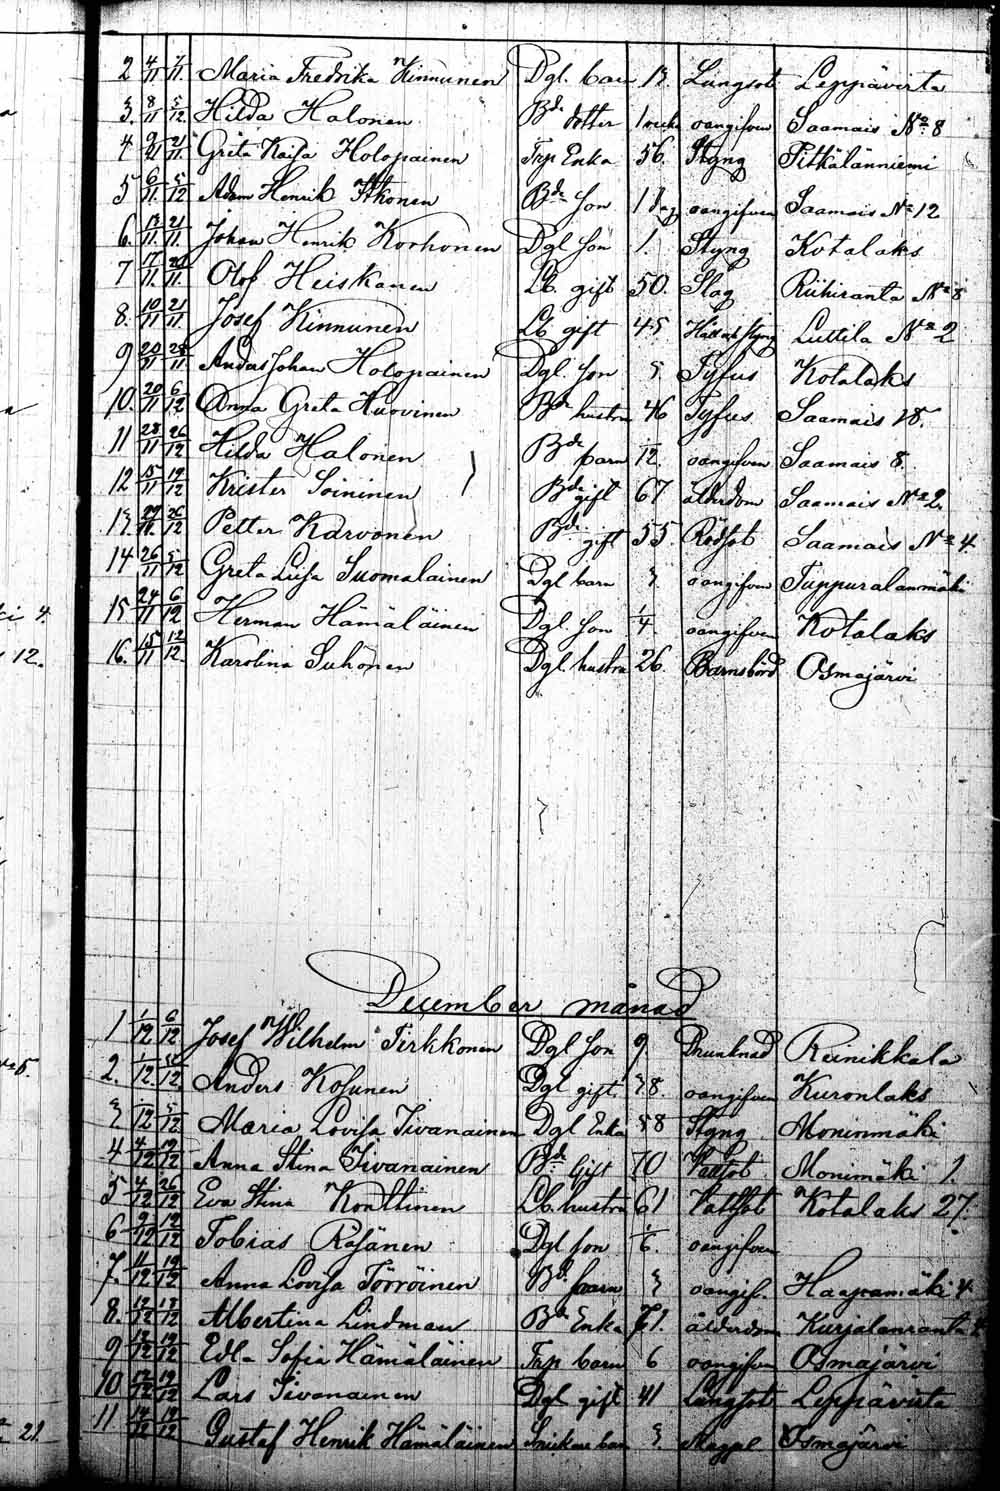 2 4/11 7/11. Maria Fredrika Kinnunen Dgl. barn 13. Lungsot Leppävirta
3. 8/11 5/12. Hilda Halonen Bde dotter 1 vecka oangifven Saamais No 8
4 9/11 21/11. Greta Kaisa Holopainen Trp Enka 56. Styng Pitkälänniemi
5 6/11. 5/12 Adam Henrik Itkonen Bde Son 1 dag oangifven Saamais No 12
6. 13/11. 21/11. Johan Henrik Korhonen Dgl Son 1. Styng Kotalaks
7 17/11. 21/11. Olof Heiskanen Lb. gift 50. Slag Riihiranta No 8
8. 10/11 21/11. Josef Kinnunen Lb gift 45 Håll och Styng Luttila No 2
9 20/11 28/11. Anders Johan Holopainen Dgl. Son 5. Tyfus Kotalaks
10. 20/11 6/12 Anna Greta Huovinen Bde hustru 46 Tyfus Saamais 18.
11 28/11 26/12 Hilda Halonen Bde barn 1/12. oangifven Saamais 8.
12 15/11 19/12 Krister Soininen Bde gift 67 ålderdom Saamais No 2
13 29/11. 26/12 Petter Karvonen Bde gift 55. Rödsot Saamais No 4
14 26/11 5/12 Greta Lisa Suomalainen Dgl barn 3. oangifven Tuppuralanmäki
15 24/11 6/12 Herman Hämäläinen Dgl. Son 1/4. oangifven Kotalaks
16. 15/11 12/12 Karolina Suhonen Dgl hustru 26. Barnsbörd Osmajärvi
December månad
1 1/12 6/12 Josef Wilhelm Tirkkonen Dgl Son 9. Drunknad Reinikkala
2. 1/12. Anders Kosunen Dgl gift 38. oangifven Kuronlaks
3 1/12 5/12 Maria Lovisa Iivanainen Dgl Enka 58 Styng Moninmäki
4 4/12 19/12 Anna Stina Iivanainen Bde Gift 70 Vattsot Monimäki 1.
5 4/12 26/12 Eva Stina Konttinen Lb. hustru 61 Vattsot Kotalaks 27.
6 9/12 19/12 Tobias Räsänen Dgl Son 1/6. oangifven
7. 11/12 19/12 Anna Lovisa Törröinen Bde barn 3 oangif. Haapamäki 4
8. 12/12 13/12 Albertina Lindman Bde Enka 71. ålderdom Kurjalanranta
9 12/12 19/12 Edla Sofia Hämäläinen Trp barn 6 oangifven Osmajärvi
10 12/12 19/12 Lars Iivanainen Dgl gift 41 Lungsot Leppävirta
11 14/12 19/12 Gustaf Henrik Hämäläinen Snickare barn 3. Magpl Osmajärvi